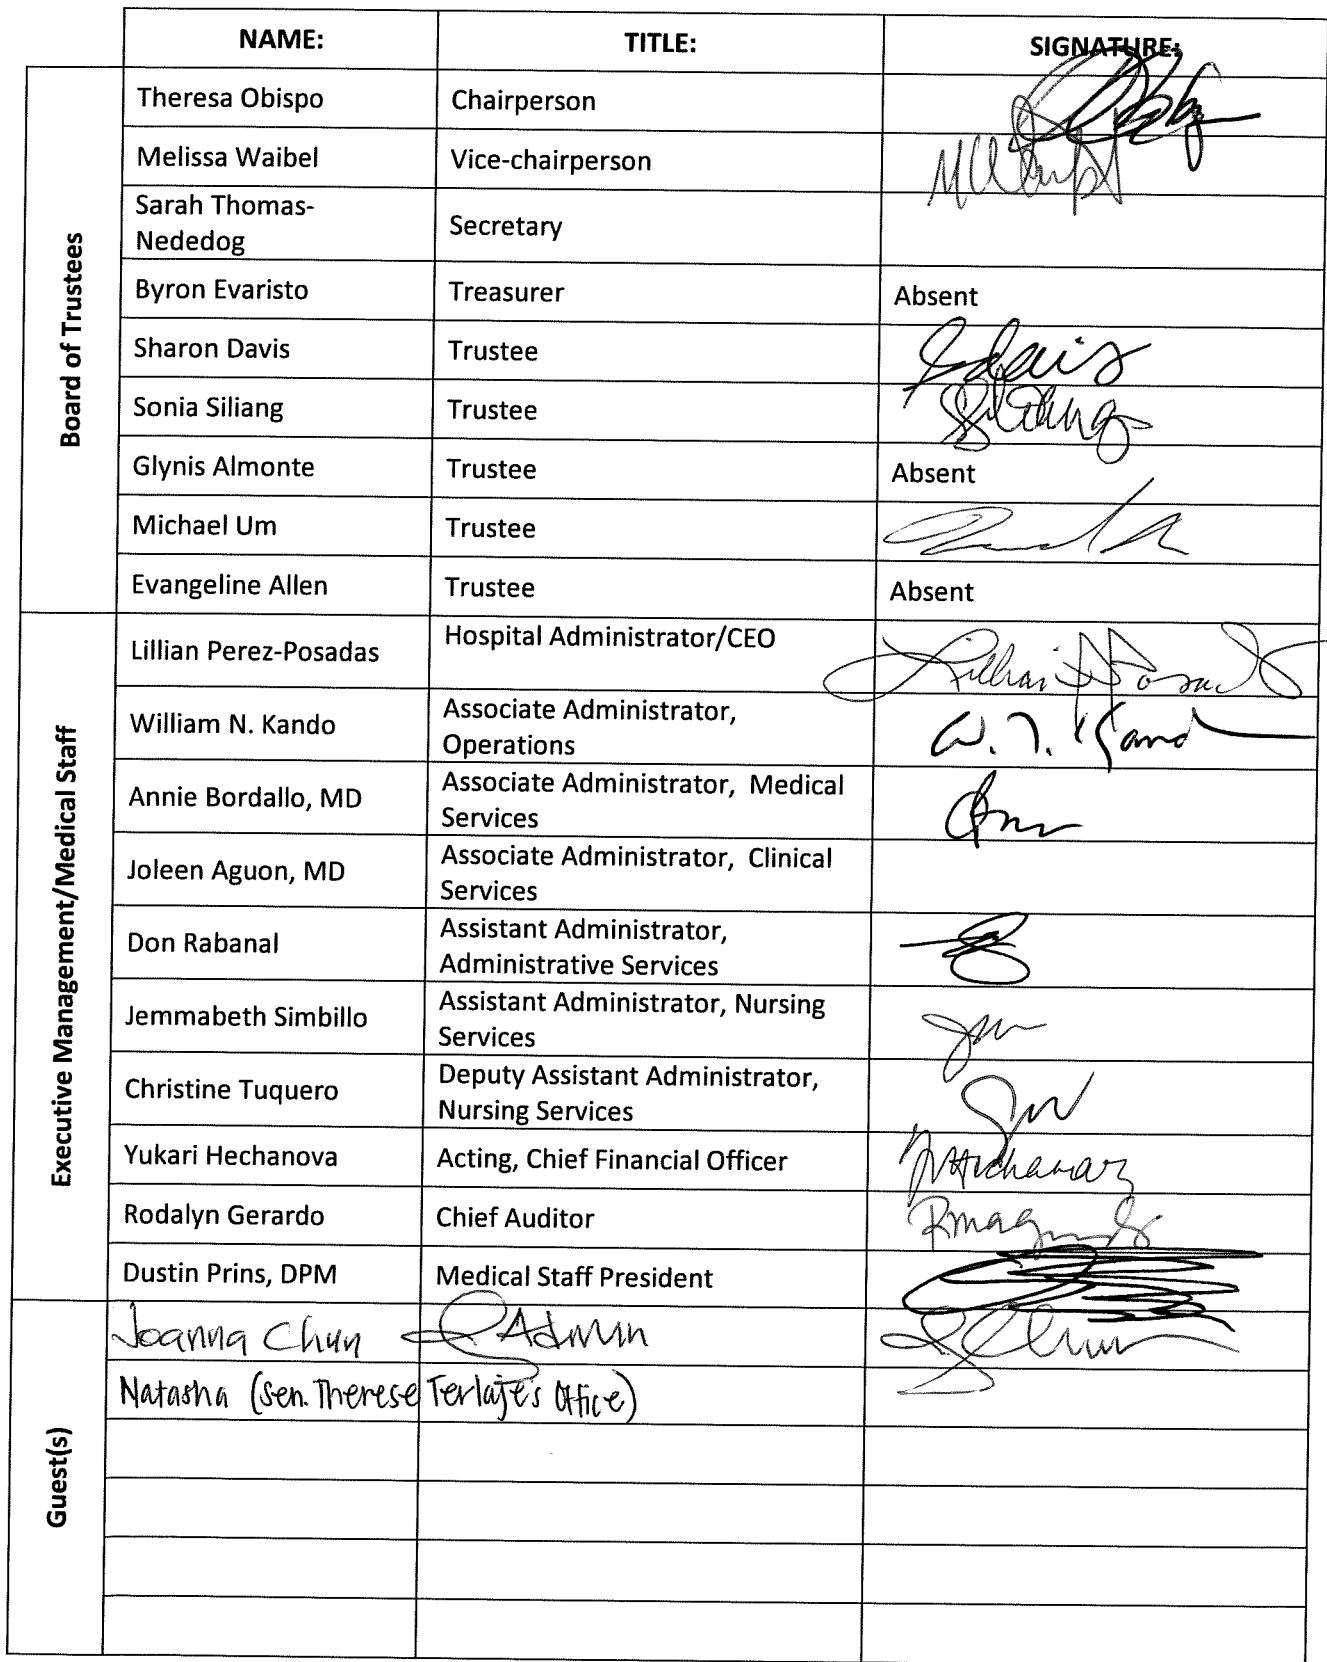 NAME: TITLE: SIGNATURE:
Board of Trustees
Theresa Obispo Chairperson
Melissa Waibel Vice-chairperson
Sarah Thomas-
Nededog Secretary
Byron Evaristo Treasurer Absent
Sharon Davis Trustee
Sonia Siliang Trustee
Glynis Almonte Trustee Absent
Michael Um Trustee
Evangeline Allen Trustee Absent
Executive Management/Medical Staff
Lillian Perez-Posadas Hospital Administrator/CEO
William N. Kando Associate Administrator,
Operations
Annie Bordallo, MD Associate Administrator, Medical
Services
Joleen Aguon, MD Associate Administrator, Clinical
Services
Don Rabanal Assistant Administrator,
Administrative Services
Jemmabeth Simbillo Assistant Administrator, Nursing
Services
Christine Tuquero Deputy Assistant Administrator,
Nursing Services
Yukari Hechanova Acting, Chief Financial Officer
Rodalyn Gerardo Chief Auditor
Dustin Prins, DPM Medical Staff President
Guest(s)
Joanna Chun Admin
Natasha (Sen. Therese Terlaje's Office)